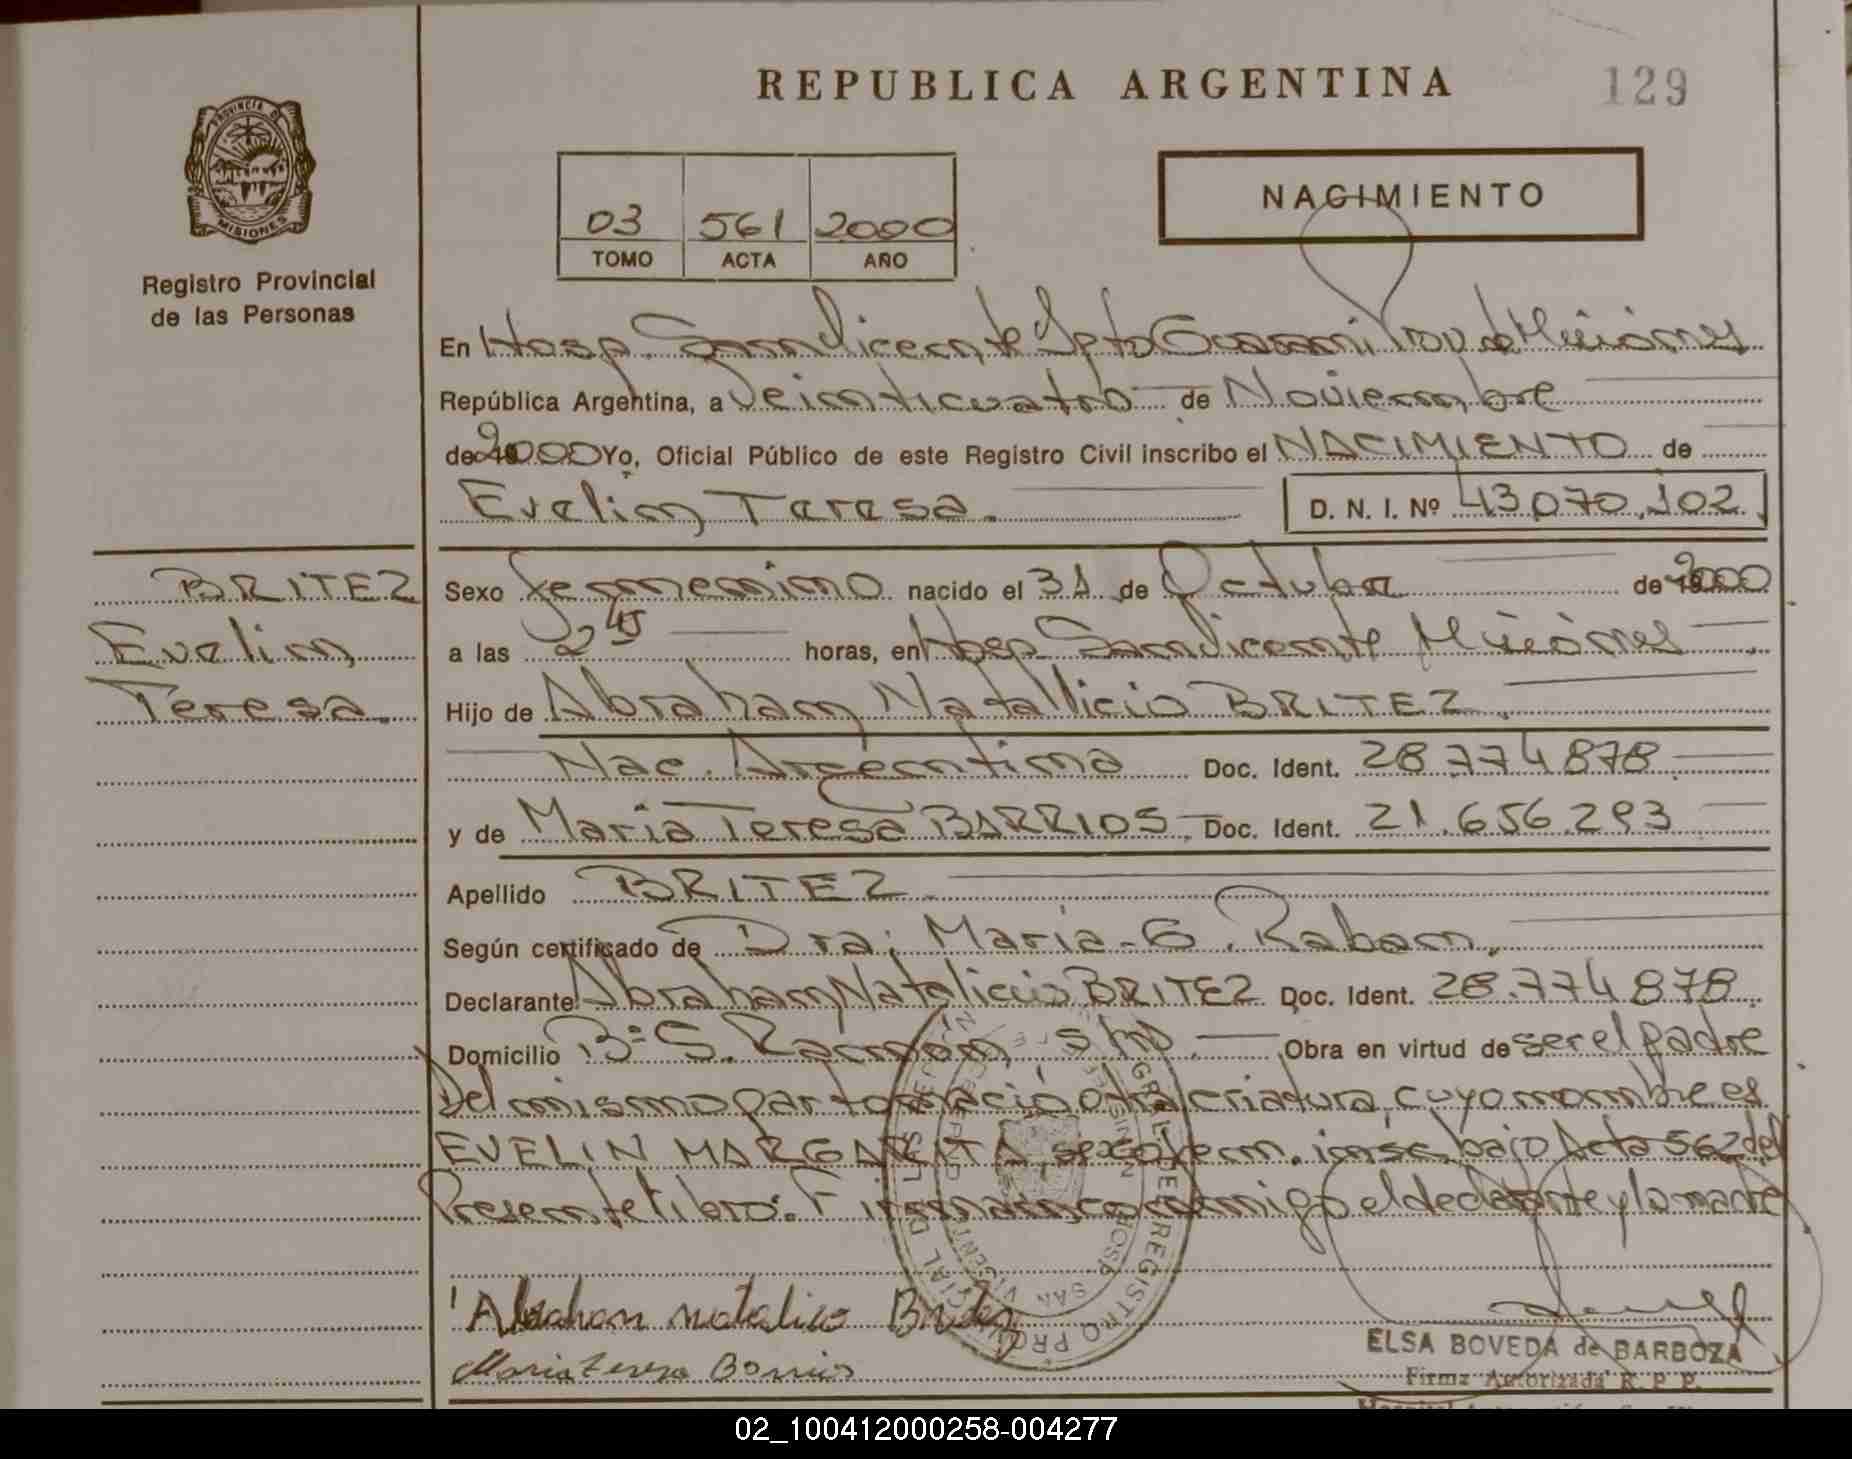 REPUBLICA ARGENTINA
129
PROVINCIA D
MISIONES
Registro Provincial
de las Personas
03 561 2000
TOMO ACTA AÑO
NACIMIENTO
En Hosp. San Vicente Dpto Guarani Prov. de Misiones
República Argentina, a Veinticuatro de Noviembre
de 2000 Yo, Oficial Público de este Registro Civil inscribo el NACIMIENTO de
Evelin Teresa. D. N. I. Nº 43.070.102.
BRITEZ
Evelin
Teresa.
Sexo femenino nacido el 31 de Octubre de 2000
a las 2 45 horas, en Hosp San Vicente Misiones
Hijo de Abraham Natallicio BRITEZ.
Nac. Argentina Doc. Ident. 28.774.878
y de Maria Teresa BARRIOS Doc. Ident. 21.656.293
Apellido BRITEZ
Según certificado de Dra. Maria G. Raban.
Declarante Abraham Natalicio BRITEZ Doc. Ident. 28.774.878
Domicilio Bº S. Ramón s/nº. Obra en virtud de ser el padre
Del mismo parto nació otra criatura, cuyo nombre es
EVELIN MARGARITA, sexo fem. insc. bajo Acta 562 del
Presente libro. Firman conmigo el declarante y la madre
Abraham natalicio Britez
Maria teresa Barrios
ELSA BOVEDA de BARBOZA
Firma Autorizada R. P. P.
02_100412000258-004277